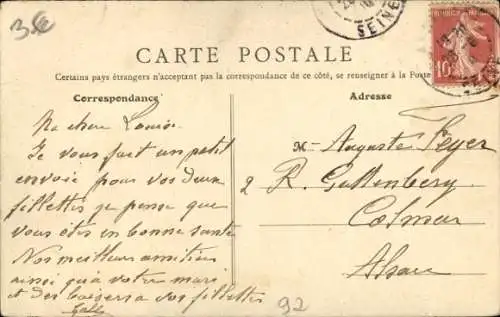 3,50
SEINE
10
CARTE POSTALE
Certains pays étrangers n'acceptant pas la correspondance de ce côté, se renseigner à la Poste
Correspondance
Adresse
Ma chère Louise.
Je vous fait un petit
envoie pour vos deux
fillettes je pense que
vous êtes en bonne santé
Nos meilleurs amitiés
ainsi qu'à votre mari
et des baisers a vos fillettes
M- Auguste Feyer
2 R. Guttenberg
Colmar
Alsace
92